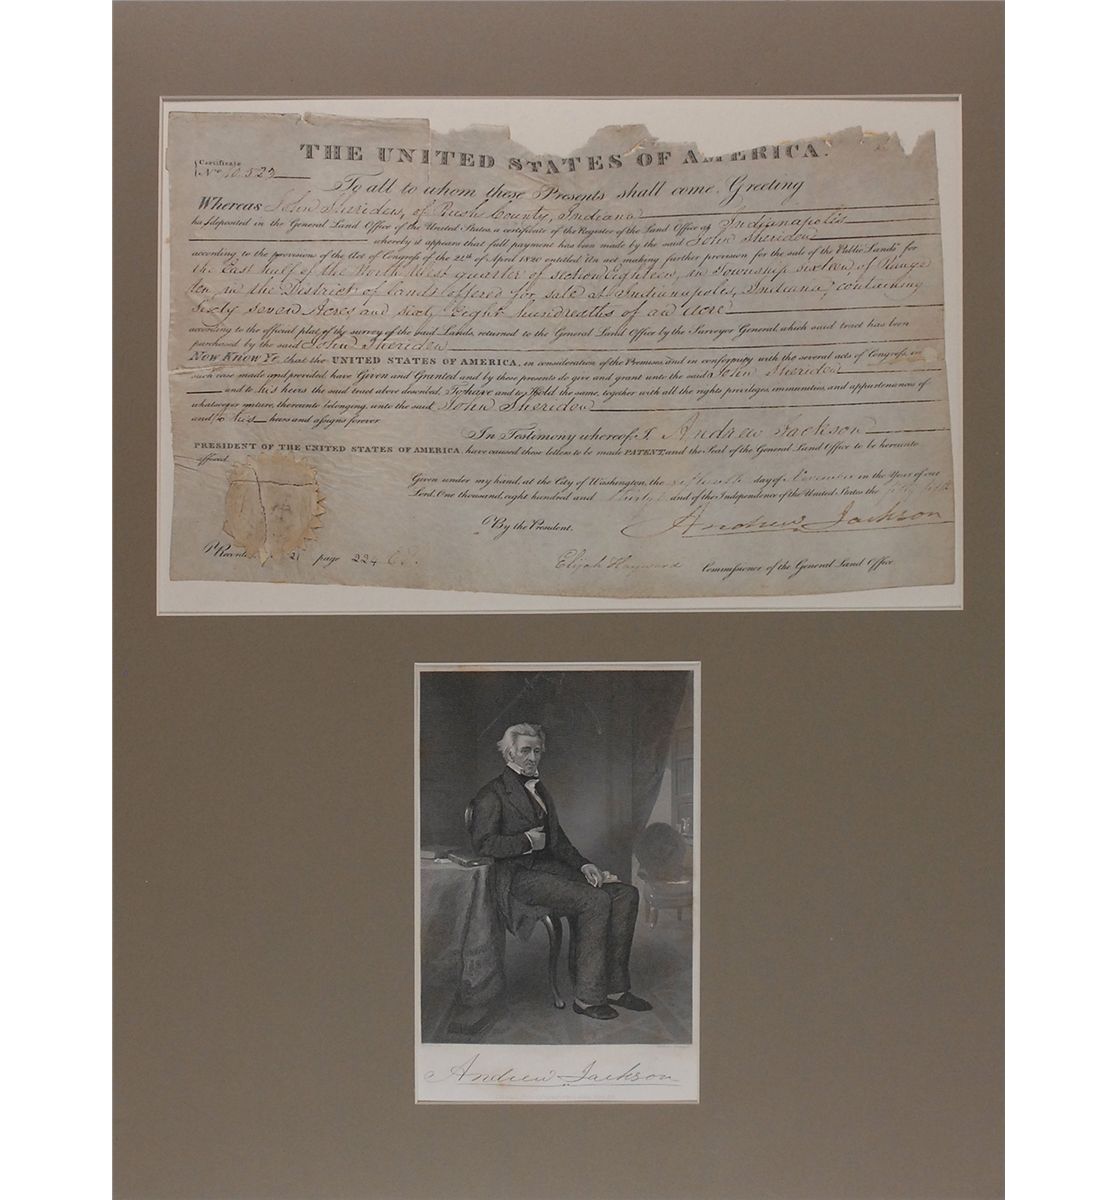 THE UNITED STATES OF AMERICA.
Certificate
No. 10523
To all to whom these Presents shall come, Greeting
Whereas John Sheriden, of Rush County, Indiana
has deposited in the General Land Office of the United States, a certificate of the Register of the Land Office at Indianapolis
whereby it appears that full payment has been made by the said John Sheriden
according to the provisions of the Act of Congress of the 24th of April 1820 entitled An act making further provision for the sale of the Public Lands for
the East half of the North West quarter of section Eighteen, in Township sixteen of Range
ten, in the District of lands offered for sale at Indianapolis, Indiana, containing
Sixty seven Acres and sixty Eight hundredths of an Acre
according to the official plat of the survey of the said Lands, returned to the General Land Office by the Surveyor General, which said tract has been
purchased by the said John Sheriden
Now Know Ye, that the UNITED STATES OF AMERICA, in consideration of the Premises, and in conformity with the several acts of Congress, in
such case made and provided have Given and Granted and by these presents do give and grant unto the said John Sheriden
and to his heirs the said tract above described, To have and to Hold the same, together with all the rights privileges, immunities, and appurtenances of
whatsoever nature, thereunto belonging, unto the said John Sheriden
and to his heirs and assigns forever
In Testimony whereof, I, Andrew Jackson
PRESIDENT OF THE UNITED STATES OF AMERICA, have caused these letters to be made PATENT, and the Seal of the General Land Office to be hereunto
affixed
Given under my hand, at the City of Washington, the day of in the Year of our
Lord, One thousand, eight hundred and thirty and of the Independence of the United States the fifty fifth
By the President.
Andrew Jackson
page 224
Elijah Hayward Commissioner of the General Land Office
Andrew Jackson